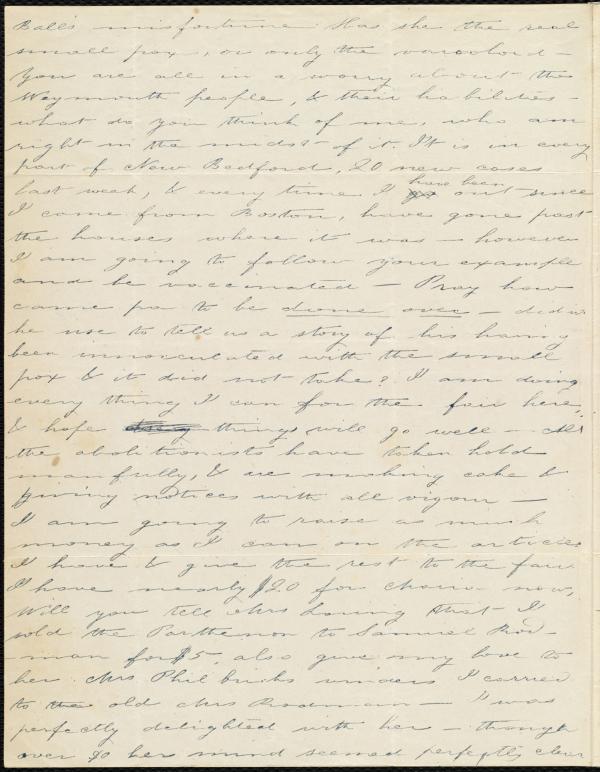 Ball's misfortune. Has she the real
small pox, or only the varioloid –
You are all in a worry about the
Weymouth people, & their liabilities –
what do you think of me, who am
right in the midst of it. It is in every
part of New Bedford, 20 new cases
last week, & every time I have been out since
I came from Boston, have gone past
the houses where it was – however
I am going to follow your example
and be vaccinated – Pray how
came pa to be done over – didn't
he use to tell us a story of his having
been innoculated with the small
pox & it did not take? I am doing
every thing I can for the fair here,
& hope things will go well – All
the abolitionists have taken hold
manfully, & are making cake &
giving notices with all vigour –
I am going to raise as much
money as I can on the articles
I have & give the rest to the fair
I have nearly $20 for chain now,
Will you tell Mrs Loring that I
sold the Parthenon to Samuel Rod-
man for $5, also give my love to
her. Mrs Philbricks I carried
to the old Mrs Rodman – I was
perfectly delighted with her – though
over 90 her mind seemed perfectly clear